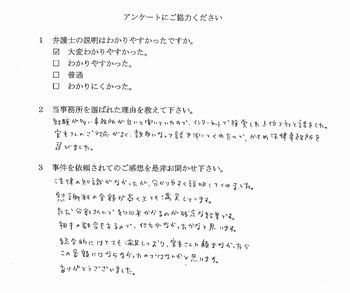 アンケートにご協力ください
1 弁護士の説明はわかりやすかったですか。
☑ 大変わかりやすかった。
□ わかりやすかった。
□ 普通
□ わかりにくかった。
2 当事務所を選ばれた理由を教えて下さい。
経験が多い事務所が良いと聞いていたので、インターネットで検索した上位2社と話をした。
宮本さんのご対応がよく、親身になって話を聞いてくれたので、かがやき法律事務所を
選びました。
3 事件を依頼されてのご感想を是非お聞かせ下さい。
法律の知識がなかったが、分かりやすく説明してくれました。
慰謝料の金額が高くとても満足しています。
ただ分割払いで
相手の都合もあるので、仕方がなかったかなと思います。
総合的にはとても満足しており、宮本さんに頼まなかったら
この金額にはならなかったのではないかと思います。
ありがとうございました。